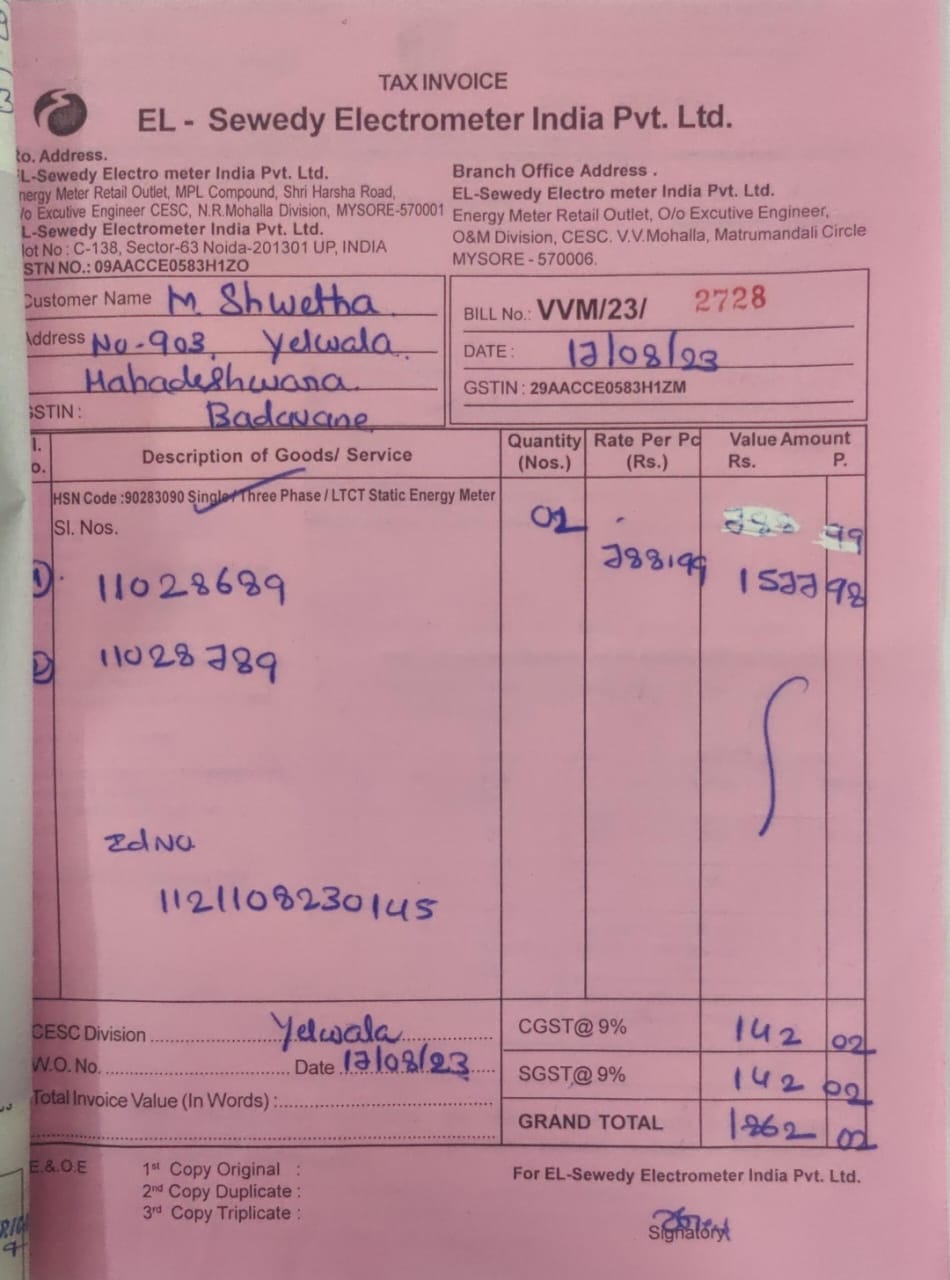 TAX INVOICE
EL - Sewedy Electrometer India Pvt. Ltd.
to. Address.
L-Sewedy Electro meter India Pvt. Ltd.
nergy Meter Retail Outlet, MPL Compound, Shri Harsha Road,
/o Excutive Engineer CESC, N.R.Mohalla Division, MYSORE-570001
L-Sewedy Electrometer India Pvt. Ltd.
lot No : C-138, Sector-63 Noida-201301 UP, INDIA
STN NO.: 09AACCE0583H1ZO
Branch Office Address .
EL-Sewedy Electro meter India Pvt. Ltd.
Energy Meter Retail Outlet, O/o Excutive Engineer,
O&M Division, CESC. V.V.Mohalla, Matrumandali Circle
MYSORE - 570006.
Customer Name M. Shwetha
Address No-903, Yelwala
Mahadeshwara
GSTIN : Badavane
BILL No.: VVM/23/ 2728
DATE : 17/08/23
GSTIN : 29AACCE0583H1ZM
l. o. Description of Goods/ Service Quantity (Nos.) Rate Per Pc (Rs.) Value Amount Rs. P.
HSN Code :90283090 Single / Three Phase / LTCT Static Energy Meter
Sl. Nos.
02 788.99 788 99
1577 98
1) 11028689
2) 11028789
Id No
1121108230145
CESC Division Yelwala
W.O. No. Date 17/08/23
Total Invoice Value (In Words) :
CGST@ 9% 142 02
SGST@ 9% 142 02
GRAND TOTAL 1862 02
E.& O.E
1st Copy Original :
2nd Copy Duplicate :
3rd Copy Triplicate :
For EL-Sewedy Electrometer India Pvt. Ltd.
Signatory